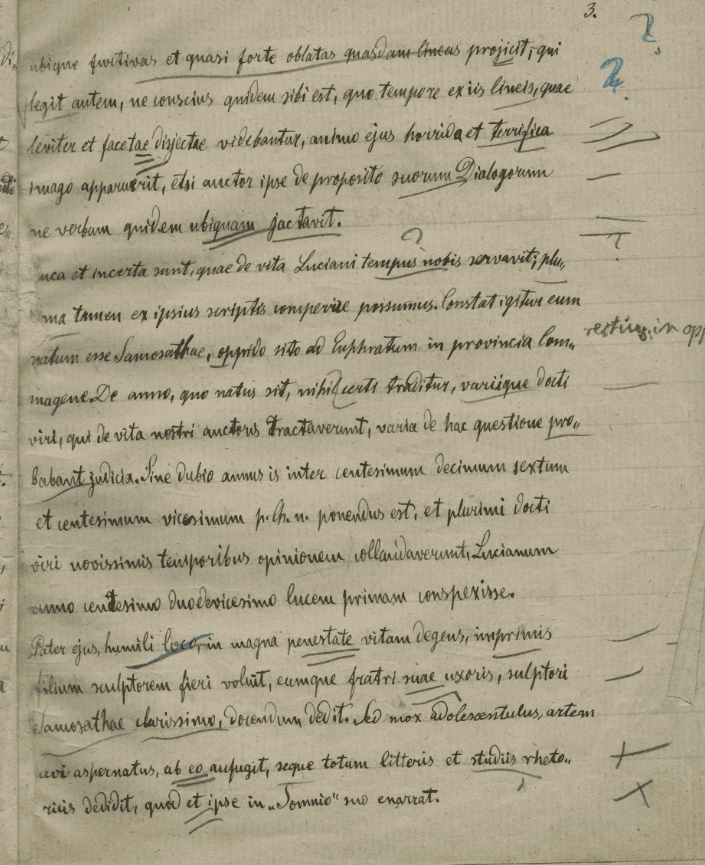 3.
ubique furtivas et quasi forte oblatas quasdam lineas projicit, qui
legit autem, ne conscius quidem sibi est, quo tempore ex iis lineis, quae
leviter et facetae disjectae videbantur, animo ejus horrida et terrifica
imago apparuerit, etsi auctor ipse de proposito suorum Dialogorum
ne verbum quidem ubiquam jactavit.
uca et incerta sunt, quae de vita Luciani tempus nobis servavit; plu-
ma tamen ex ipsius scriptis comperire possumus. Constat igitur eum
natum esse Samosathae, oppido sito ad Euphratum in provincia Com-
magene. De anno, quo natus sit, nihil certi traditur, variique docti
viri, qui de vita nostri auctoris tractaverunt, varia de hac questione pro-
babant judicia. Sine dubio annus is inter centesimum decimum sextum
et centesimum vicesimum p. Ch. n. ponendus est, et plurimi docti
viri novissimis temporibus opinionem collaudaverunt, Lucianum
anno centesimo duodevicesimo lucem primam conspexisse.
Pater ejus, humili loco, in magna penestate vitam degens, imprimis
filium sculptorem fieri voluit, eumque fratri suae uxoris, sculptori
Samosathae clarissimo, docendum dedit. Sed mox adolescentulus, artem
avi aspernatus, ab eo aufugit, seque totum litteris et studiis rheto-
ricis dedidit, quod et ipse in „Somnio" suo enarrat.